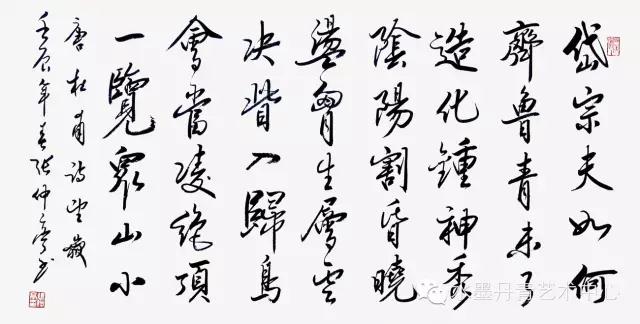 岱宗夫如何
齊魯青未了
造化鍾神秀
陰陽割昏曉
盪胷生層雲
決眥入歸鳥
會當凌絕頂
一覽眾山小
唐杜甫詩望嶽
壬辰年春張仲亭書
水墨丹青艺术中心